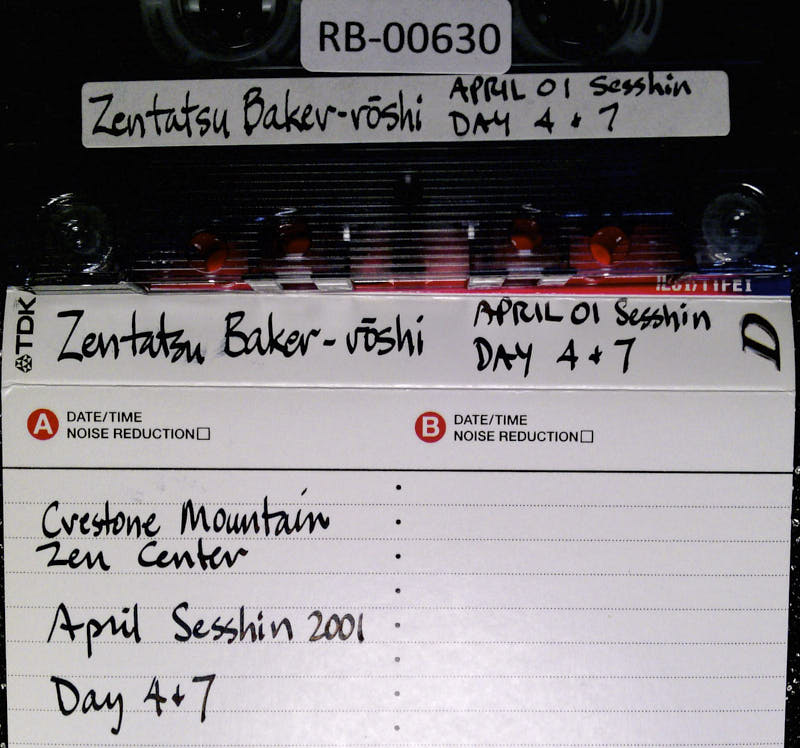 RB-00630
Zentatsu Baker-rōshi APRIL 01 Sesshin
DAY 4 + 7
IECI/TYPEI
TDK
Zentatsu Baker-rōshi APRIL 01 Sesshin
DAY 4 + 7
D
A DATE/TIME
NOISE REDUCTION
B DATE/TIME
NOISE REDUCTION
Crestone Mountain
Zen Center
April Sesshin 2001
Day 4+7